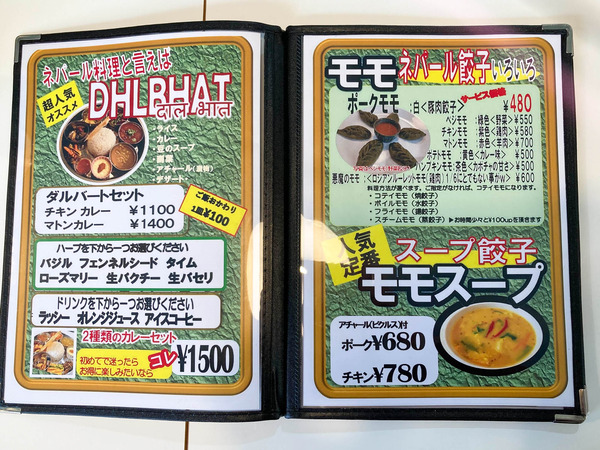 ネパール料理と言えば
超人気
オススメ
DHLBHAT
दाल भात
・ライス
・カレー
・豆のスープ
・副菜
・アチャール(漬物)
・デザート
ダルバートセット
チキン カレー ¥1100
マトンカレー ¥1400
ご飯おかわり
1皿¥100
ハーブを下から一つお選びください
バジル フェンネルシード タイム
ローズマリー 生パクチー 生パセリ
ドリンクを下から一つお選びください
ラッシー オレンジジュース アイスコーヒー
2種類のカレーセット
初めてで迷ったら
お得に楽しみたいなら
コレ ¥1500
モモ ネパール餃子いろいろ
サービス価格
ポークモモ :白<豚肉餃子> ¥480
ベジモモ :緑色<野菜> ¥550
チキンモモ :紫色<鶏肉> ¥580
マトンモモ :赤色<羊肉> ¥700
ポテトモモ :黄色<カレー味> ¥500
パンプキンモモ:茶色<カボチャの甘さ> ¥500
悪魔のモモ :<ロシアンルーレットモモ(鶏肉)1/6にとてもない事がw> ¥600
料理方法が選べます。ご指定がなければ、コテイモモになります。
・コテイモモ(焼餃子)
・ボイルモモ(水餃子)
・フライモモ(揚餃子)
・スチームモモ(蒸餃子)▶お時間少々と¥100upを頂きます
人気
定番
スープ餃子
モモスープ
アチャール(ピクルス)付
ポーク¥680
チキン¥780